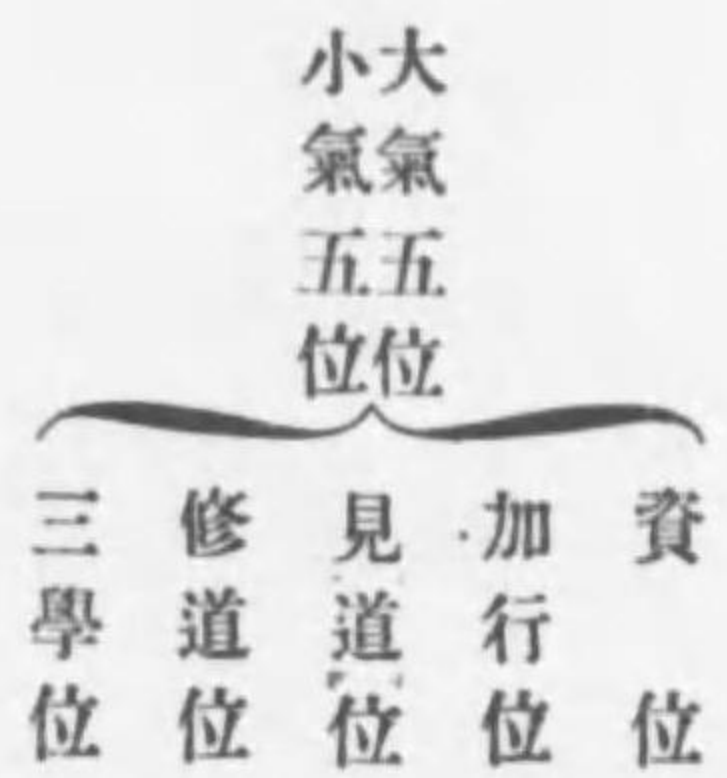 大氣五位
小氣五位
資位
加行位
見道位
修道位
三學位